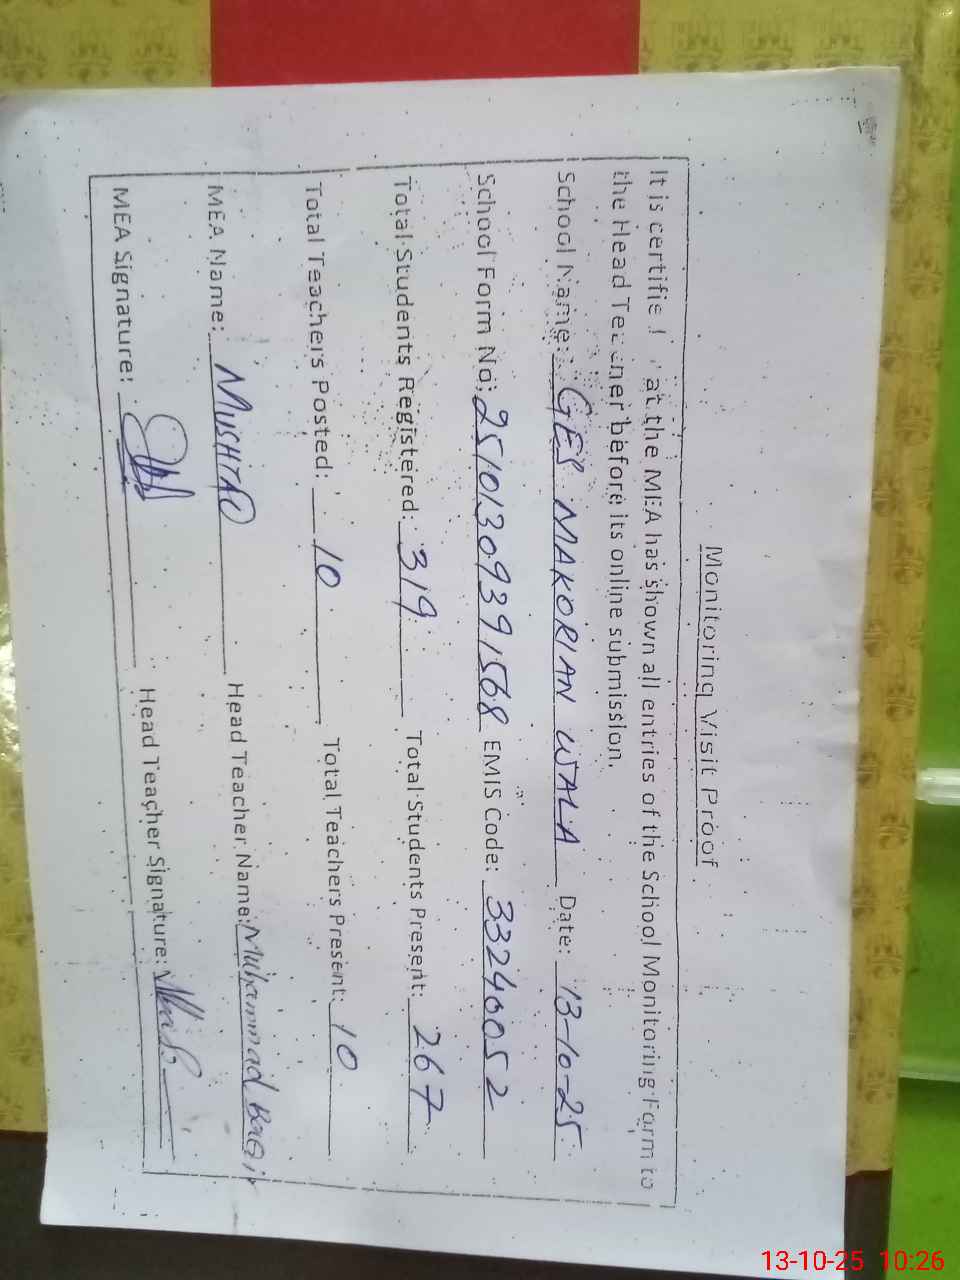 Monitoring Visit Proof
It is certified that the MEA has shown all entries of the School Monitoring Form to
the Head Teacher before its online submission.
School Name: GES MAKORIAN WALA Date: 13-10-25
School Form No: 25101309391568 EMIS Code: 33240052
Total Students Registered: 319 Total Students Present: 267
Total Teachers Posted: 10 Total Teachers Present: 10
MEA Name: MUSHTAQ Head Teacher Name: Muhammad
MEA Signature: Head Teacher Signature:
13-10-25 10:26